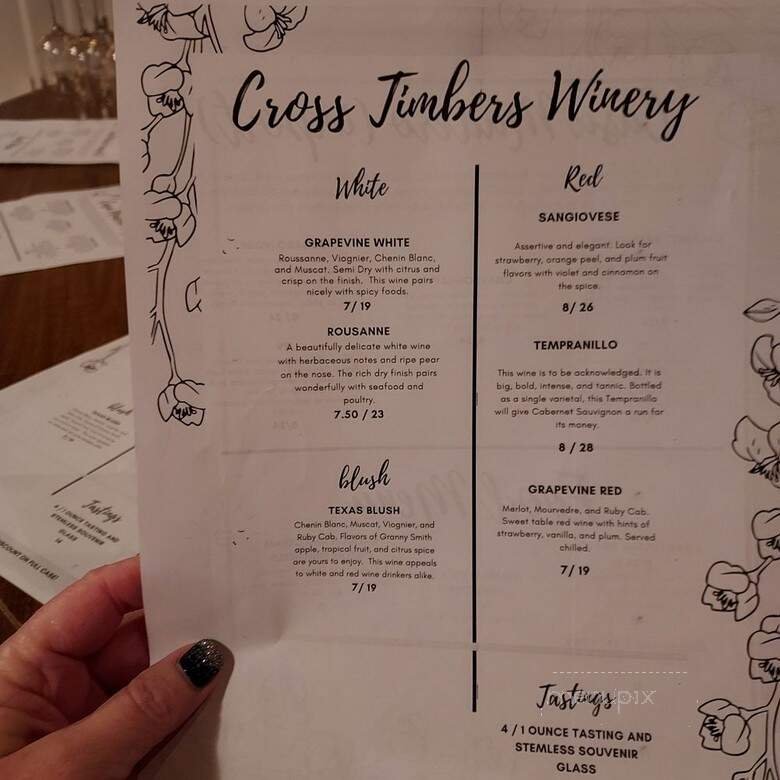 Cross Timbers Winery
White
GRAPEVINE WHITE
Roussanne, Viognier, Chenin Blanc,
and Muscat. Semi Dry with citrus and
crisp on the finish. This wine pairs
nicely with spicy foods.
7/ 19
ROUSANNE
A beautifully delicate white wine
with herbaceous notes and ripe pear
on the nose. The rich dry finish pairs
wonderfully with seafood and
poultry.
7.50 / 23
blush
TEXAS BLUSH
Chenin Blanc, Muscat, Viognier, and
Ruby Cab. Flavors of Granny Smith
apple, tropical fruit, and citrus spice
are yours to enjoy. This wine appeals
to white and red wine drinkers alike.
7/ 19
Red
SANGIOVESE
Assertive and elegant. Look for
strawberry, orange peel, and plum fruit
flavors with violet and cinnamon on
the spice.
8/ 26
TEMPRANILLO
This wine is to be acknowledged. It is
big, bold, intense, and tannic. Bottled
as a single varietal, this Tempranillo
will give Cabernet Sauvignon a run for
its money.
8 / 28
GRAPEVINE RED
Merlot, Mourvedre, and Ruby Cab.
Sweet table red wine with hints of
strawberry, vanilla, and plum. Served
chilled.
7/ 19
Tastings
4 / 1 OUNCE TASTING AND
STEMLESS SOUVENIR
GLASS
blush
Tastings
4 / 1 OUNCE TASTING AND
STEMLESS SOUVENIR
GLASS
14